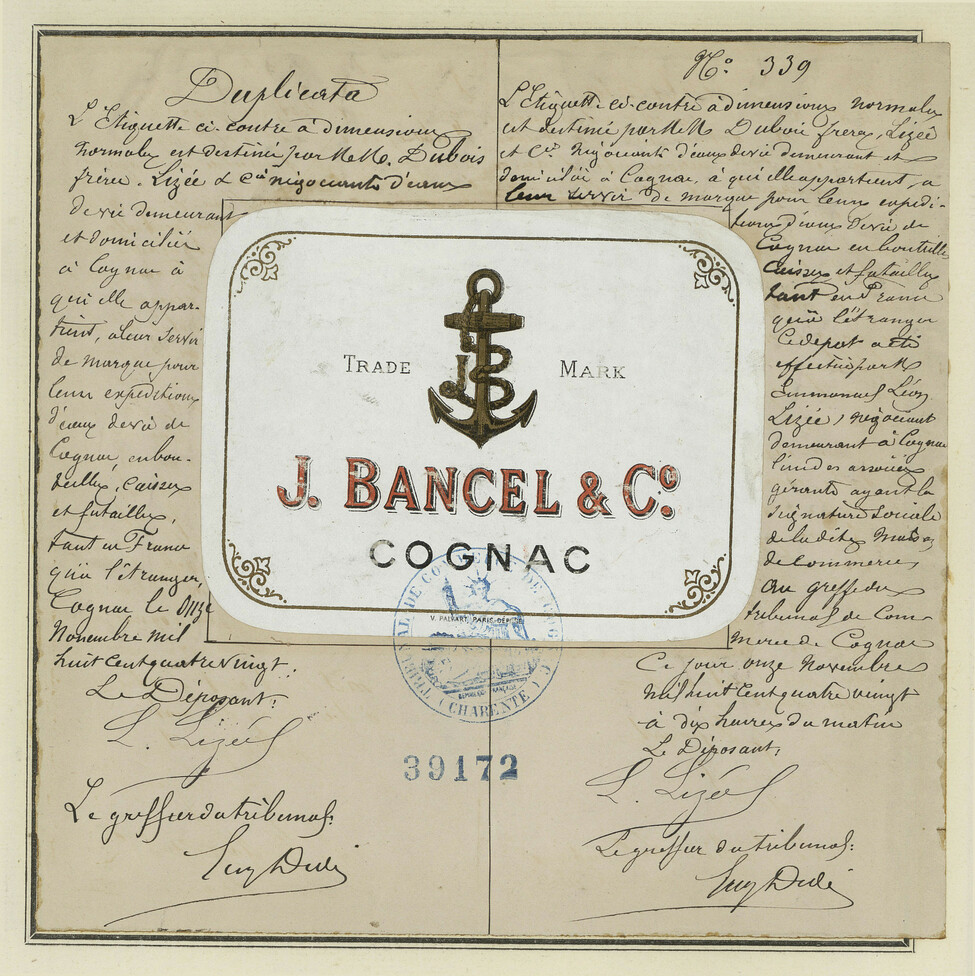 Duplicata
L'Etiquette ci-contre à dimensions
normales est destiné par M.M. Dubois
frères. Lizée & Cie négociants d'eaux
de vie demeurant
et domiciliés
à Cognac à
qui elle appar-
tient, à leur servir
de marque, pour
leurs expéditions
d'eaux de vie de
Cognac, en bou-
teilles, Caisses
et futailles,
tant en France
qu'à l'étranger,
Cognac le Onze
Novembre mil
huit cent quatre vingt.
Le Déposant:
L. Lizée
Le greffier du tribunal:
No. 339
L'Etiquette ci-contre à dimensions normales
est destiné par M.M. Dubois frères, Lizée
et Cie Négociants d'eaux de vie demeurant et
domiciliés à Cognac, à qui elle appartient, a
leur servir de marque pour leurs expédi-
tions d'eaux de vie de
Cognac en bouteilles
Caisses et futailles
tant en France
qu'à l'étranger
Ce dépôt a été
effectué par M
Emmanuel Léon
Lizée, négociant
demeurant à Cognac
l'un des associés
gérants ayant la
signature sociale
de la dite Maison
de Commerce
Au greffe du
tribunal de Com-
merce de Cognac
Ce jour onze Novembre
mil huit cent quatre vingt
à dix heures du matin
Le Déposant,
L. Lizée
Le greffier du tribunal:
TRADE MARK
J. BANCEL & Co.
COGNAC
V. PALYART, PARIS. DÉPOSÉ
TRIBUNAL DE COMMERCE DE COGNAC
CHARENTE
39172